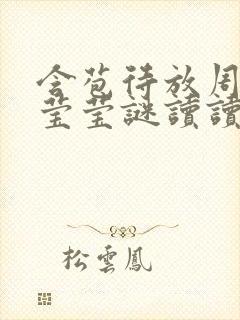 含苞待放周
莹莹謎讀讀
松雲鳳